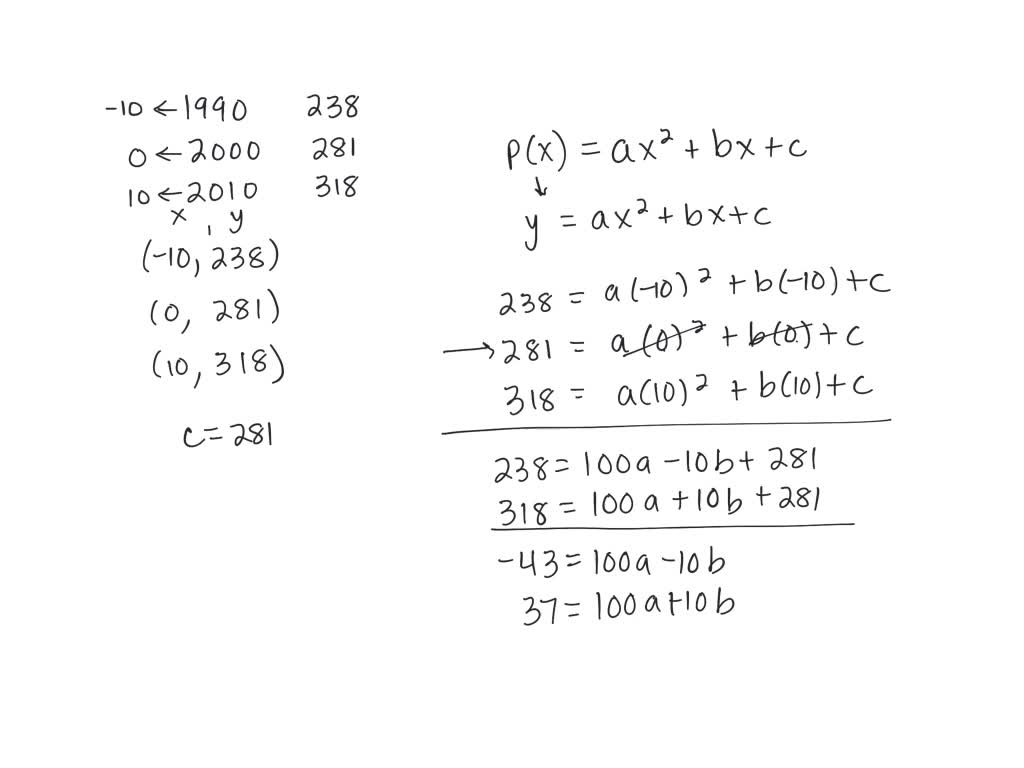 -10 ← 1990 238
0 ← 2000 281
10 ← 2010 318
x , y
(-10, 238)
(0, 281)
(10, 318)
c = 281
P(x) = ax² + bx + c
↓
y = ax² + bx + c
238 = a(-10)² + b(-10) + c
→ 281 = a(0)² + b(0) + c
318 = a(10)² + b(10) + c
238 = 100a - 10b + 281
318 = 100a + 10b + 281
-43 = 100a - 10b
37 = 100a + 10b